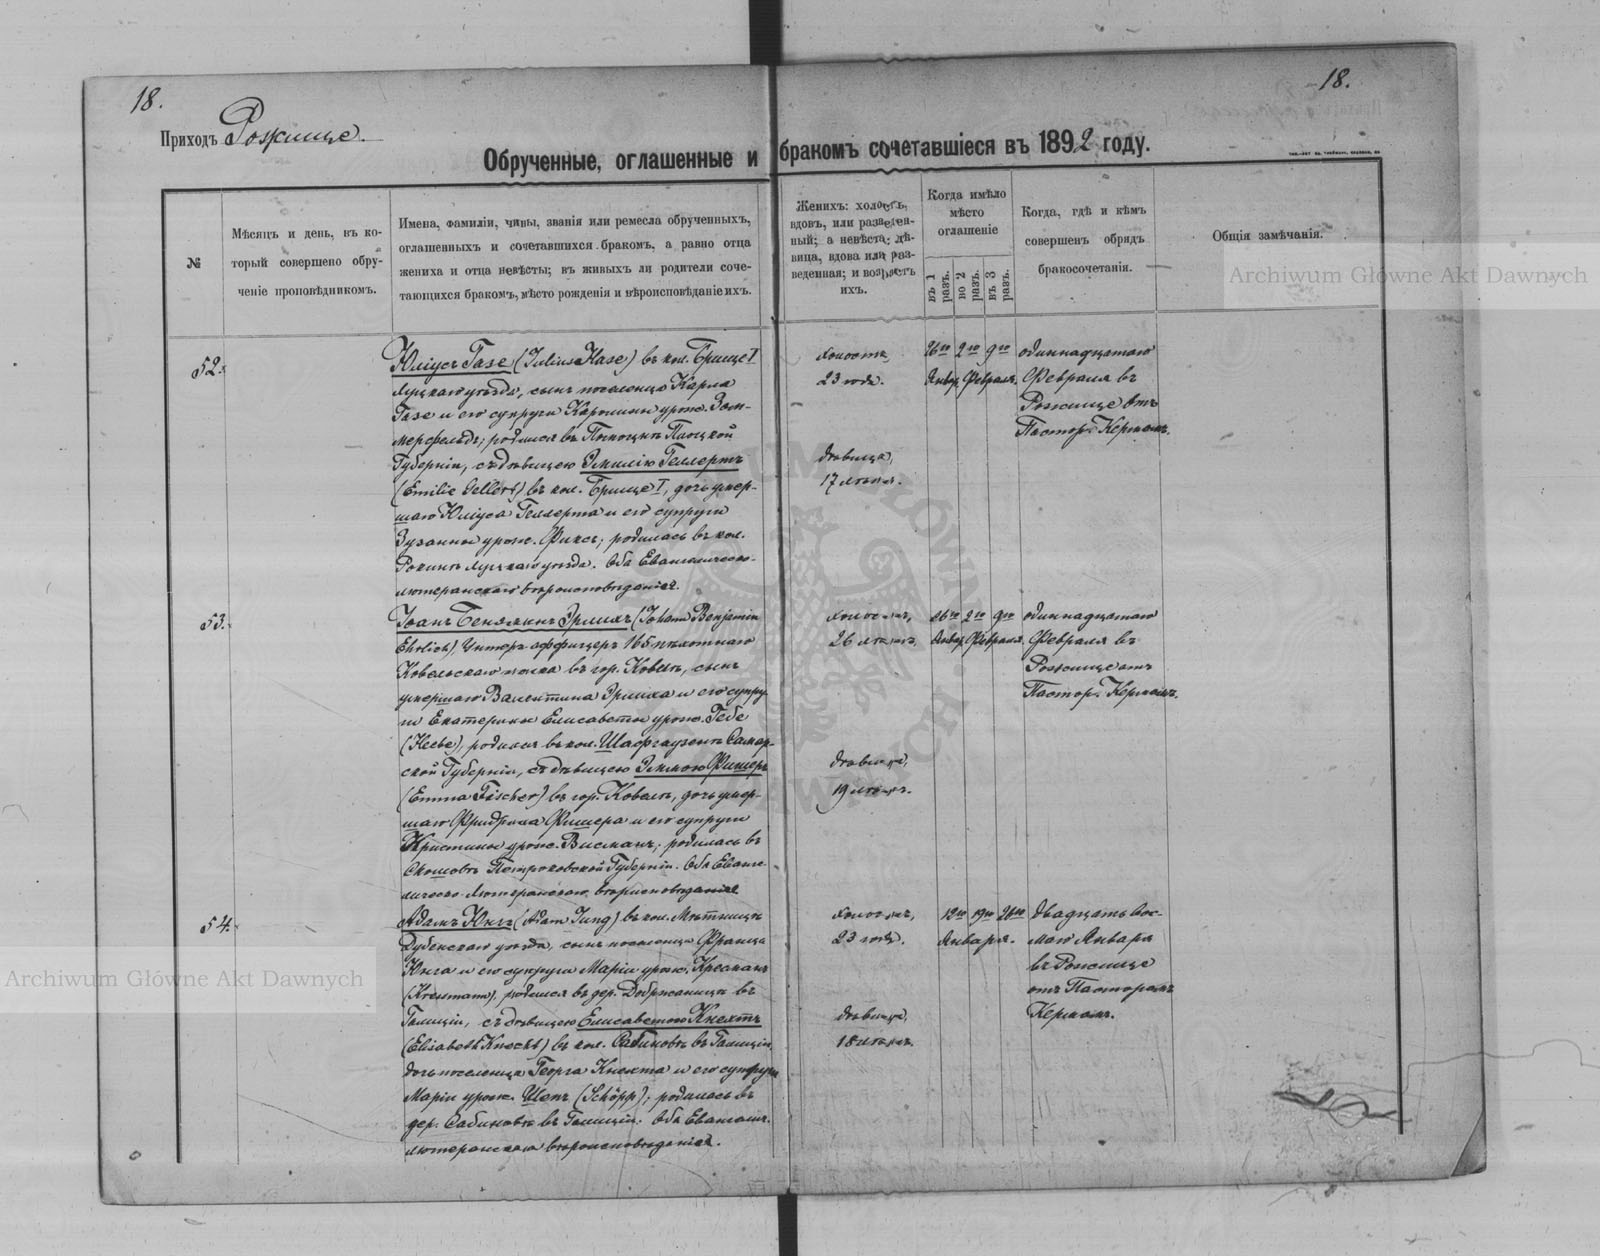 18.
18.
Приходъ Рожище.
Обрученные, оглашенные и бракомъ сочетавшіеся въ 1892 году.
№
Мѣсяцъ и день, въ ко-
торый совершено обру-
ченіе проповѣдникомъ.
Имена, фамиліи, чины, званія или ремесла обрученныхъ,
оглашенныхъ и сочетавшихся бракомъ, а равно отца
жениха и отца невѣсты; въ живыхъ ли родители соче-
тающихся бракомъ, мѣсто рожденія и вѣроисповѣданіе ихъ.
Женихъ: холостъ,
вдовъ, или разведен-
ный; а невѣста: дѣ-
вица, вдова или раз-
веденная; и возрастъ
ихъ.
Когда имѣло
мѣсто
оглашеніе
въ 1 разъ.
во 2 разъ.
въ 3 разъ.
Когда, гдѣ и кѣмъ
совершенъ обрядъ
бракосочетанія.
Общія замѣчанія.
Archiwum Główne Akt Dawnych
52.
Юліусъ Газе (Julius Hase) въ кол. Брище I
Луцкаго уѣзда, сынъ поселенца Карла
Газе и его супруги Каролины урож. Зом-
мерфельдъ; родился въ Плоцкой
Губерніи, съ дѣвицею Эмилію Геллертъ
(Emilie Gellert) въ кол. Брище I, дочь умер-
шаго Юліуса Геллерта и его супруги
Зузанны урож. Фиксъ; родилась въ кол.
Луцкаго уѣзда. Оба Евангелическо-
лютеранскаго вѣроисповѣданія.
холостъ,
23 года.
дѣвица,
17 лѣтъ.
26го 2го 9го
Январ. Февраля.
одиннадцатаго
Февраля въ
Рожище отъ
Пастор. Кермомъ.
53.
Іоанъ Беняминъ Эрлихъ (Johann Benjamin
Ehrlich), Унтеръ-оффицеръ 165 пѣхотнаго
Ковельскаго полка въ гор. Ковелѣ, сынъ
умершаго Валентина Эрлиха и его супру-
ги Екатерины Елисаветы урож. Гебе
(Heebe), родился въ кол. Шафгаузенъ Самар-
ской Губерніи, съ дѣвицею Эммою Фишеръ
(Emma Fischer) въ гор. Ковелѣ, дочь умер-
шаго Фридриха Фишера и его супруги
Христины урож. Висманъ; родилась въ
Петроковской Губерніи. Оба Еванге-
лическо Лютеранскаго вѣроисповѣданія
холостъ,
26 лѣтъ.
дѣвица,
19 лѣтъ.
26го 2го 9го
Январ. Февраля.
одиннадцатаго
Февраля въ
Рожище отъ
Пастор. Кермомъ.
54.
Адамъ Юнгъ (Adam Jung) въ кол. Мѣтница
Дубенскаго уѣзда, сынъ поселенца Франца
Юнга и его супруги Маріи урож. Кресманъ
(Kressmann), родился въ дер. Добржаница въ
Галиціи, съ дѣвицею Елисаветою Кнехтъ
(Elisabeth Knecht) въ кол. Сабиновка въ Галиціи,
дочь поселенца Георга Кнехта и его супруги
Маріи урож. Шепъ (Schöpp); родилась въ
дер. Сабиновка въ Галиціи. Оба Евангелич.
лютеранскаго вѣроисповѣданія.
холостъ,
23 года.
дѣвица,
18 лѣтъ.
12го 19го 26го
Января.
двадцать вос-
маго Января
въ Рожище
отъ Пасторомъ
Кермомъ.
Archiwum Główne Akt Dawnych